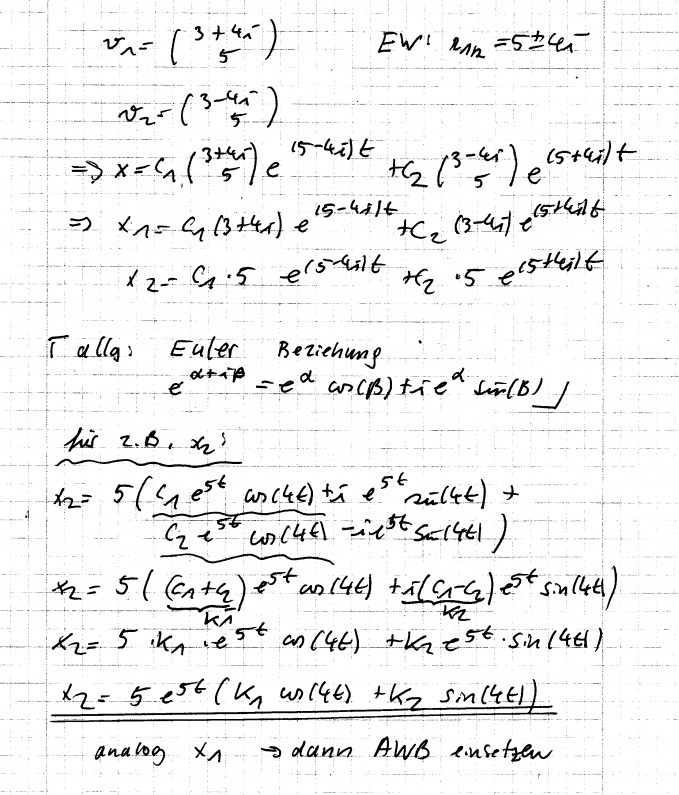 v₁ = (3+4i / 5) EW: r₁/₂ = 5±4i
v₂ = (3-4i / 5)
⇒ x = C₁ (3+4i / 5) e^(5-4i)t + C₂ (3-4i / 5) e^(5+4i)t
⇒ x₁ = C₁ (3+4i) e^(5-4i)t + C₂ (3-4i) e^(5+4i)t
x₂ = C₁ · 5 e^(5-4i)t + C₂ · 5 e^(5+4i)t
⌈ allg: Euler Beziehung
e^(α+iβ) = e^α cos(β) + i e^α sin(β) ⌋
für z.B. x₂:
x₂ = 5 ( C₁ e^5t cos(4t) + i e^5t sin(4t) +
C₂ e^5t cos(4t) - i e^5t sin(4t) )
x₂ = 5 ( (C₁+C₂) e^5t cos(4t) + i(C₁-C₂) e^5t sin(4t) )
K₁ K₂
x₂ = 5 · K₁ · e^5t cos(4t) + K₂ e^5t · sin(4t)
x₂ = 5 e^5t ( K₁ cos(4t) + K₂ sin(4t) )
analog x₁ → dann AWB einsetzen